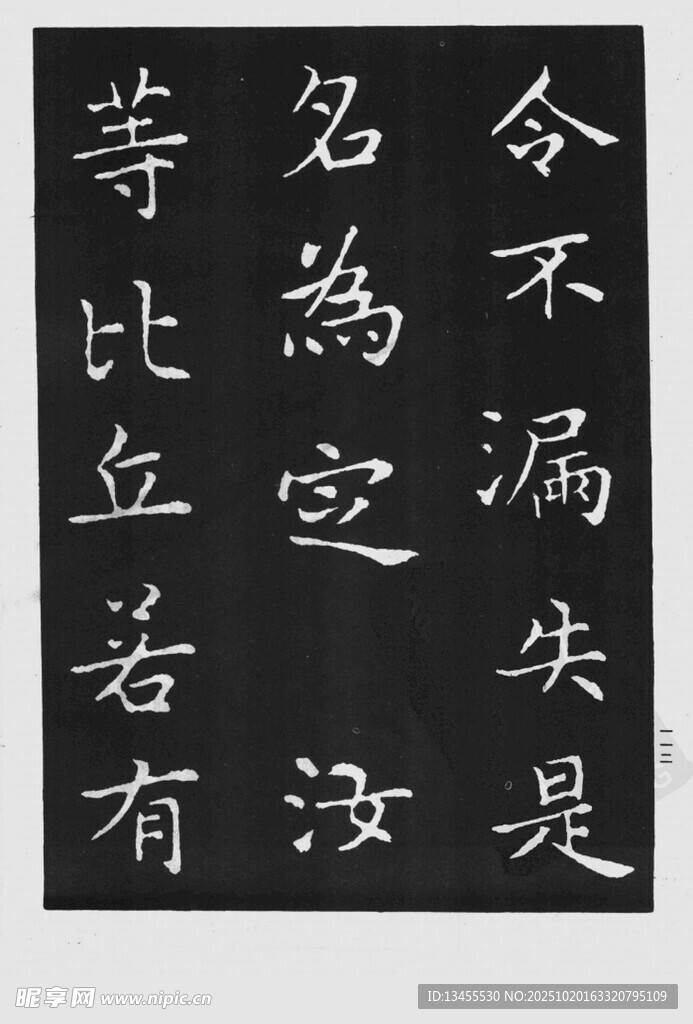 令不漏失是
名為定 汝
等比丘若有
一三
昵享网 www.nipic.cn
ID:13455530 NO:20251020163320795109